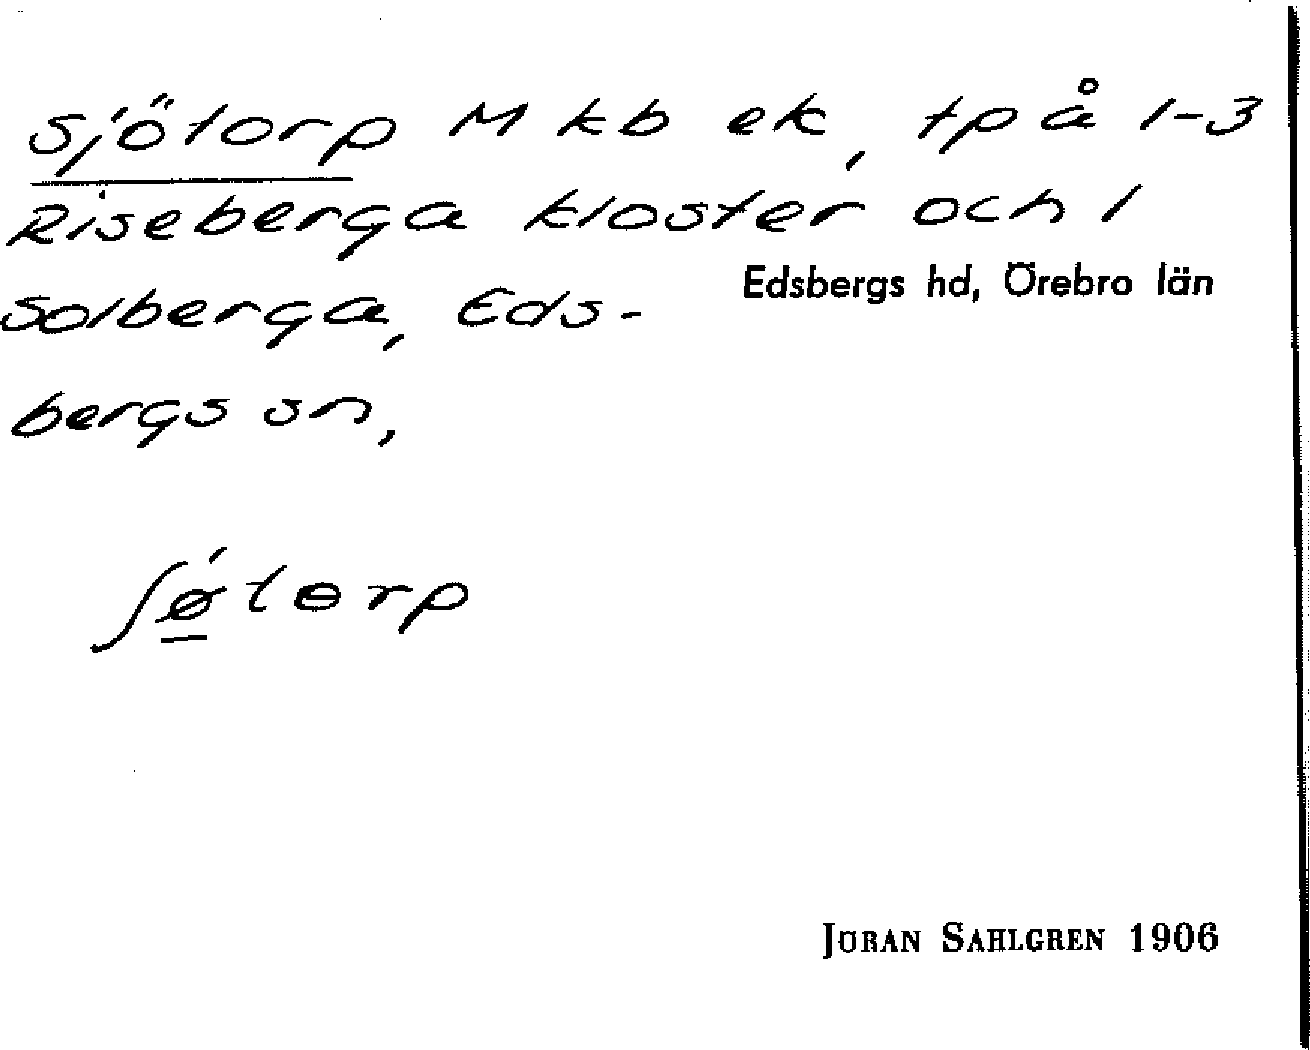 Sjötorp M kb ek, tp å 1-3
Riseberga kloster och 1
Solberga, Eds-
bergs sn,
Edsbergs hd, Örebro län
ʃǿtɵrp
JÖRAN SAHLGREN 1906